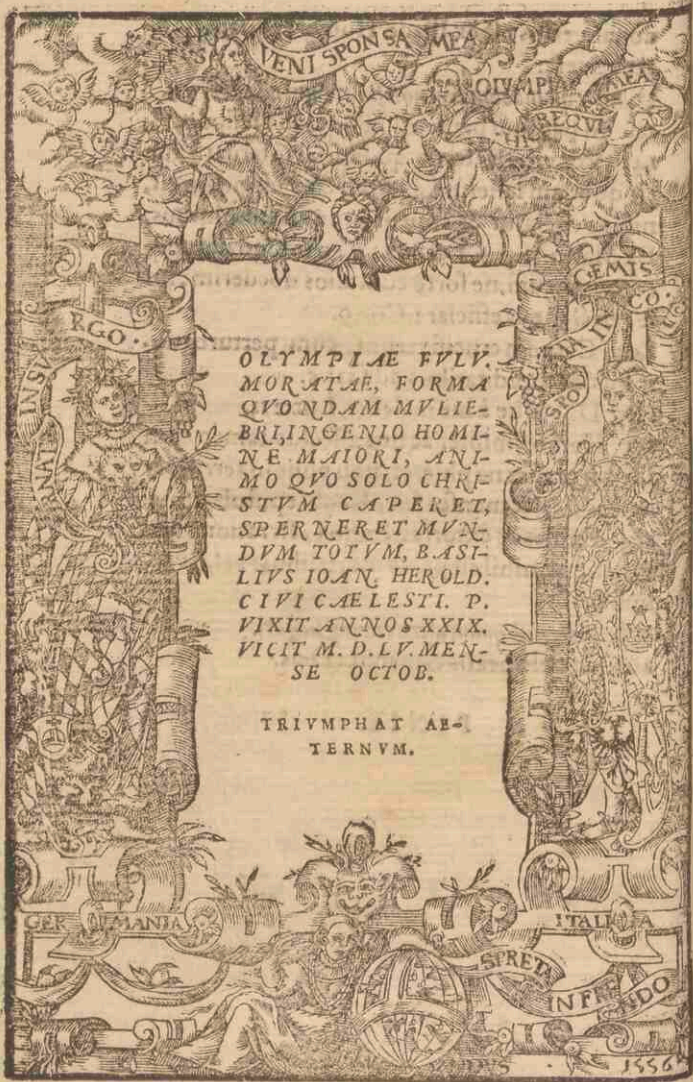 VENI SPONSA MEA
OLYMPI
MEA
HIC REQVI
GEMIS
CO
RGO
IA IN
SPOL
INSV
RNATE
OLYMPIAE FVLV.
MORATAE, FORMA
QVONDAM MVLIE-
BRI, INGENIO HOMI-
NE MAIORI, ANI-
MO QVO SOLO CHRI-
STVM CAPERET,
SPERNERET MVN-
DVM TOTVM, BASI-
LIVS IOAN. HEROLD.
CIVI CAELESTI. P.
VIXIT ANNOS XXIX.
VICIT M. D. LV. MEN-
SE OCTOB.
TRIVMPHAT AE-
TERNVM.
GERMANIA
ITALIA
SPRETA
INFRENDO
1556